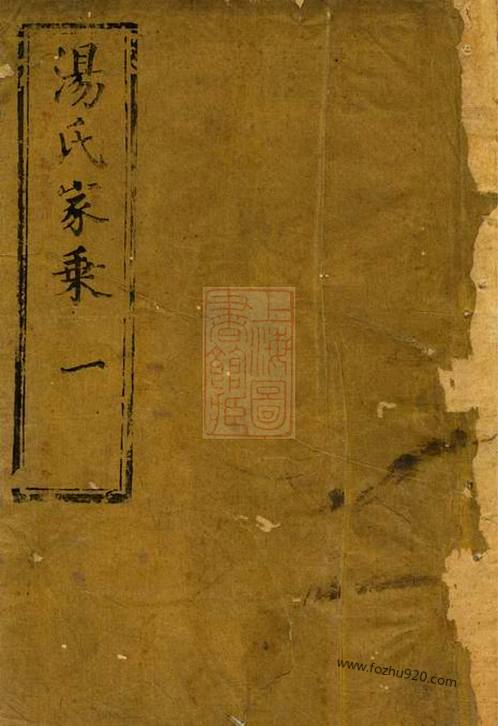 湯氏家乘 一
上海圖
書館藏
www.fozhu920.com